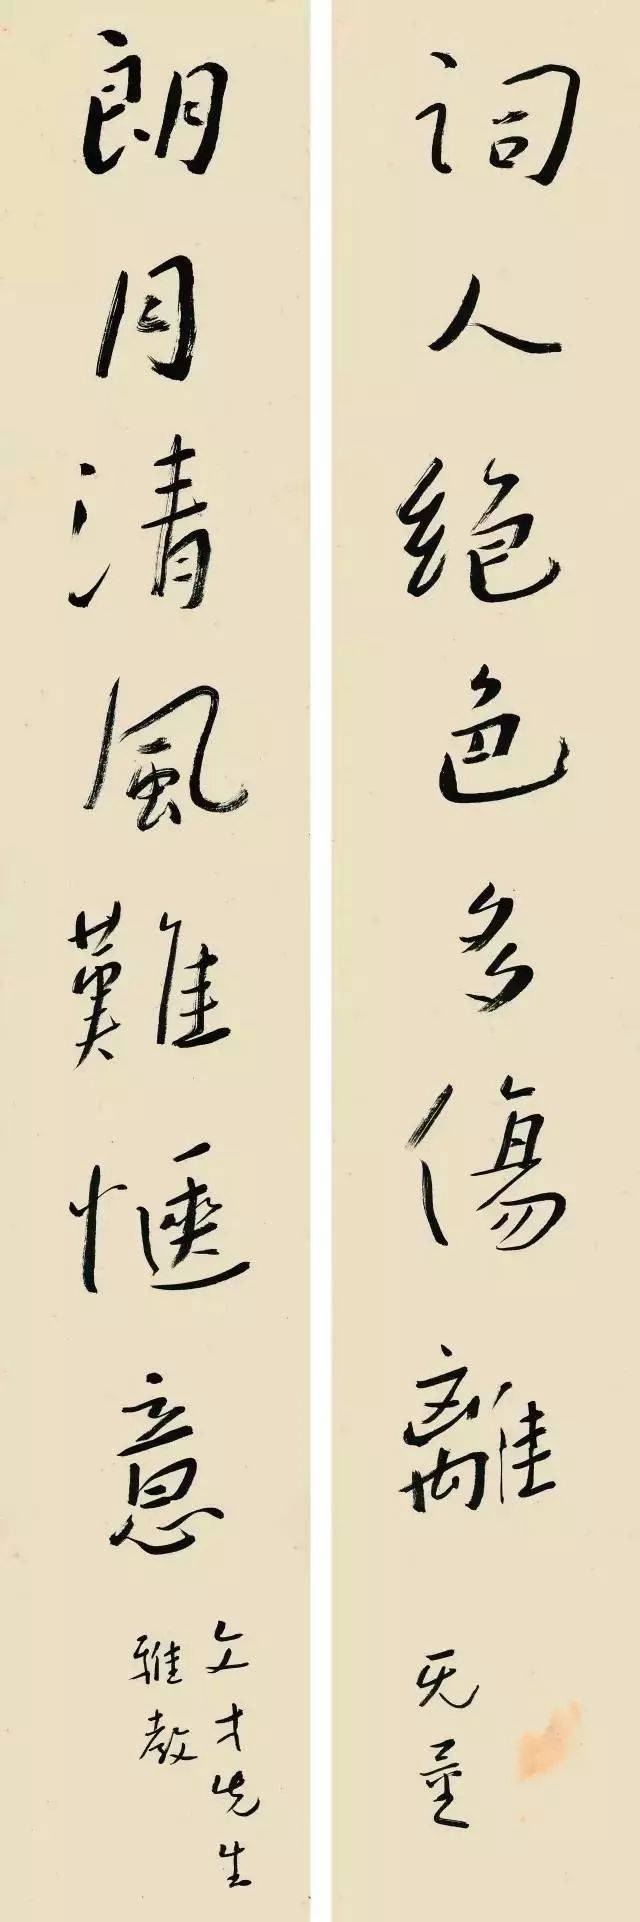 詞人絕色多傷離
无量
朗月清風難愜意
文才先生
雅教